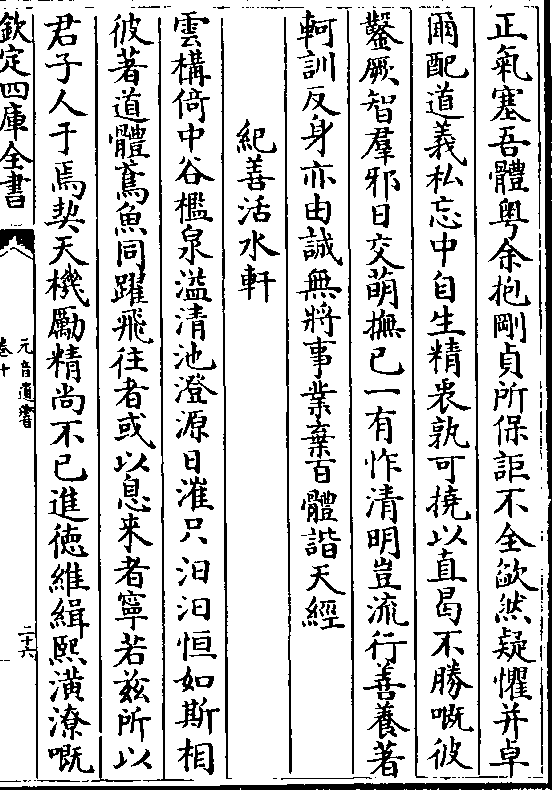 正氣塞吾體粤余抱剛貞所保詎不全歛然疑懼并卓
爾配道義私忘中自生精衷孰可撓以直曷不勝嘅彼
鑿厥智羣邪日交萌撫已一有怍清明豈流行善養著
軻訓反身亦由誠無將事業棄百體諧天經
紀善活水軒
雲構倚中谷檻泉溢清池澄源日漼只汩汩恒如斯相
彼著道體鳶魚同躍飛往者或以息来者寧若兹所以
君子人于焉契天機勵精尚不已進徳維緝熙潢潦嘅
欽定四庫全書
元音遺響
卷十
二十六